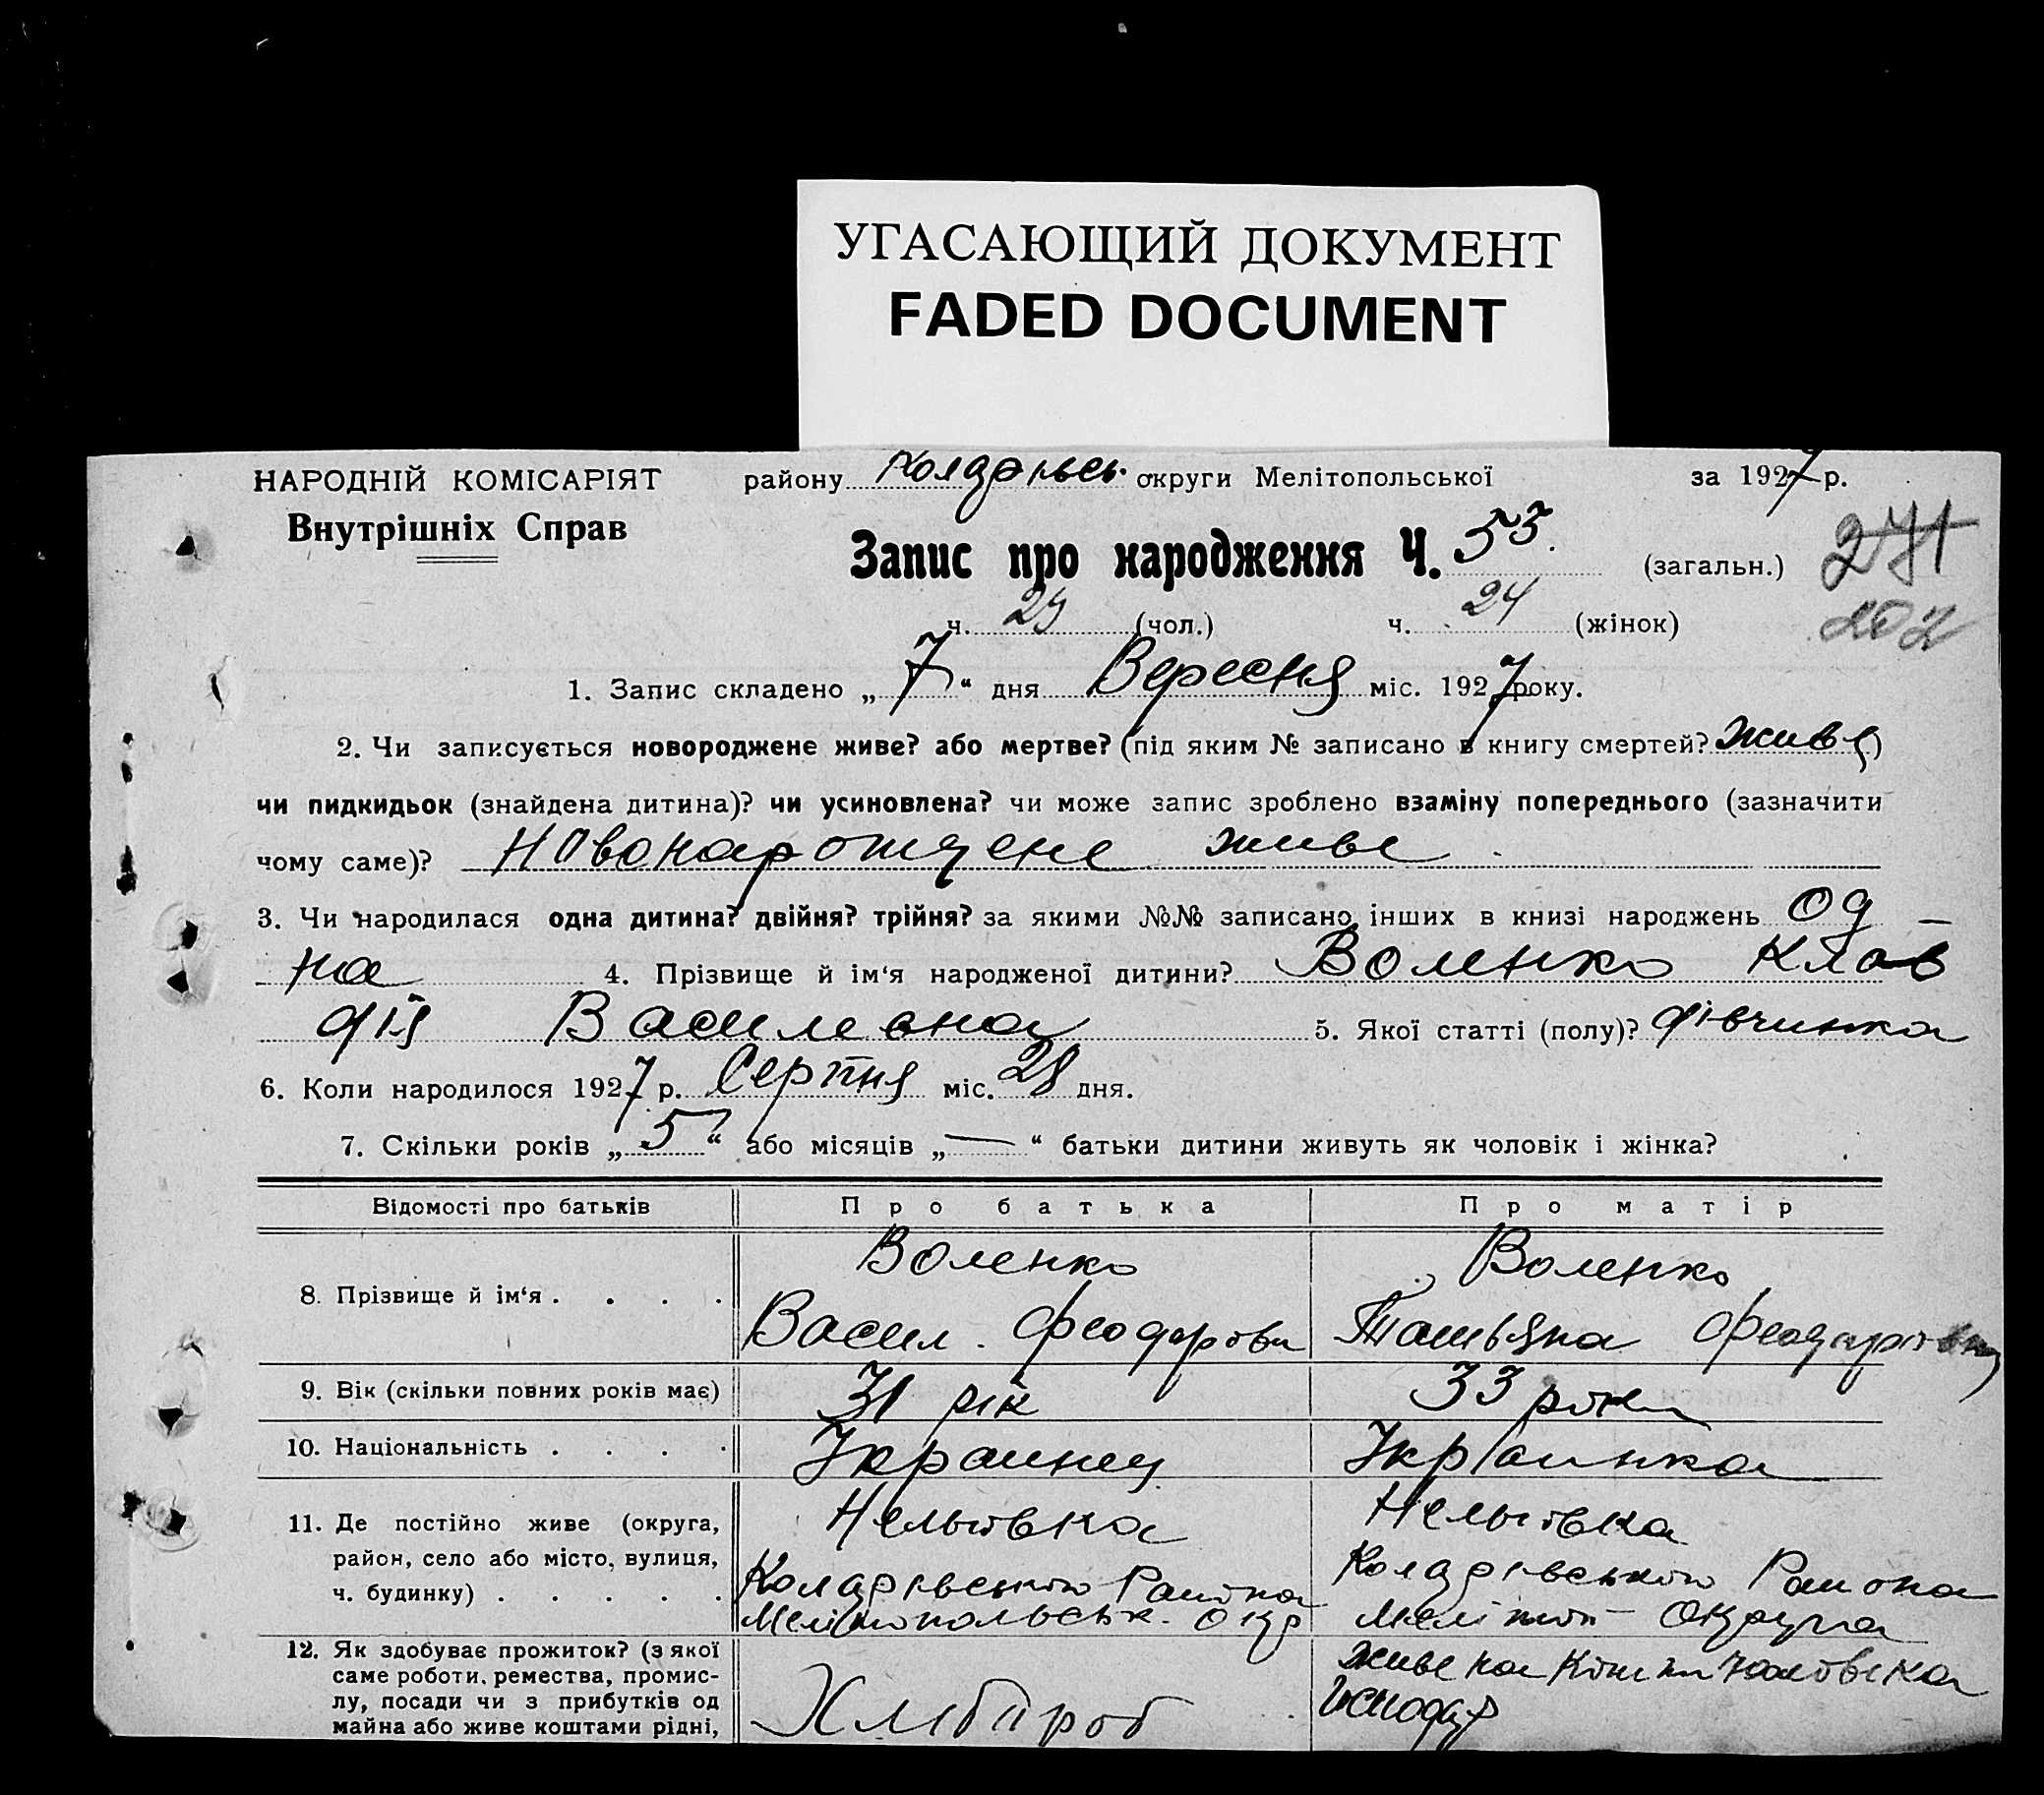 УГАСАЮЩИЙ ДОКУМЕНТ
FADED DOCUMENT
НАРОДНІЙ КОМІСАРІЯТ
Внутрішніх Справ
району округи Мелітопольської за 1927 р.
Запис про народження Ч. 53. (загальн.) 271
ч. 29 (чол.) ч. 24 (жінок)
1. Запис складено „ 7 “ дня Вересня міс. 1927 року.
2. Чи записується новороджене живе? або мертве? (під яким № записано в книгу смертей? живе)
чи пидкидьок (знайдена дитина)? чи усиновлена? чи може запис зроблено взаміну попереднього (зазначити
чому саме)? Новонарождене живе
3. Чи народилася одна дитина? двійня? трійня? за якими №№ записано інших в книзі народжень од –
на 4. Прізвище й ім‘я народженої дитини? Воленко Клав
дія Василевна 5. Якої статті (полу)? дівчинка
6. Коли народилося 1927 р. Серпня міс. 28 дня.
7. Скільки років „ 5 “ або місяців „ — “ батьки дитини живуть як чоловік і жінка?
Відомості про батьків Про батька Про матір
8. Прізвище й ім‘я . . . .
Воленко
Васил. Феодорови
Воленко
Татьяна Феодоровна
9. Вік (скільки повних років має) 31 рік 33 роки
10. Національність . . . . Украинец Украинка
11. Де постійно живе (округа,
район, село або місто, вулиця,
ч. будинку) . . . . .
Нельгівка
Района
Мелітопольськ. окр
Нельгівка
Района
Мелітоп– Округа
12. Як здобуває прожиток? (з якої
саме роботи, ремества, промис-
лу, посади чи з прибутків од
майна або живе коштами рідні,
Хлібороб
живе на кошти чоловіка